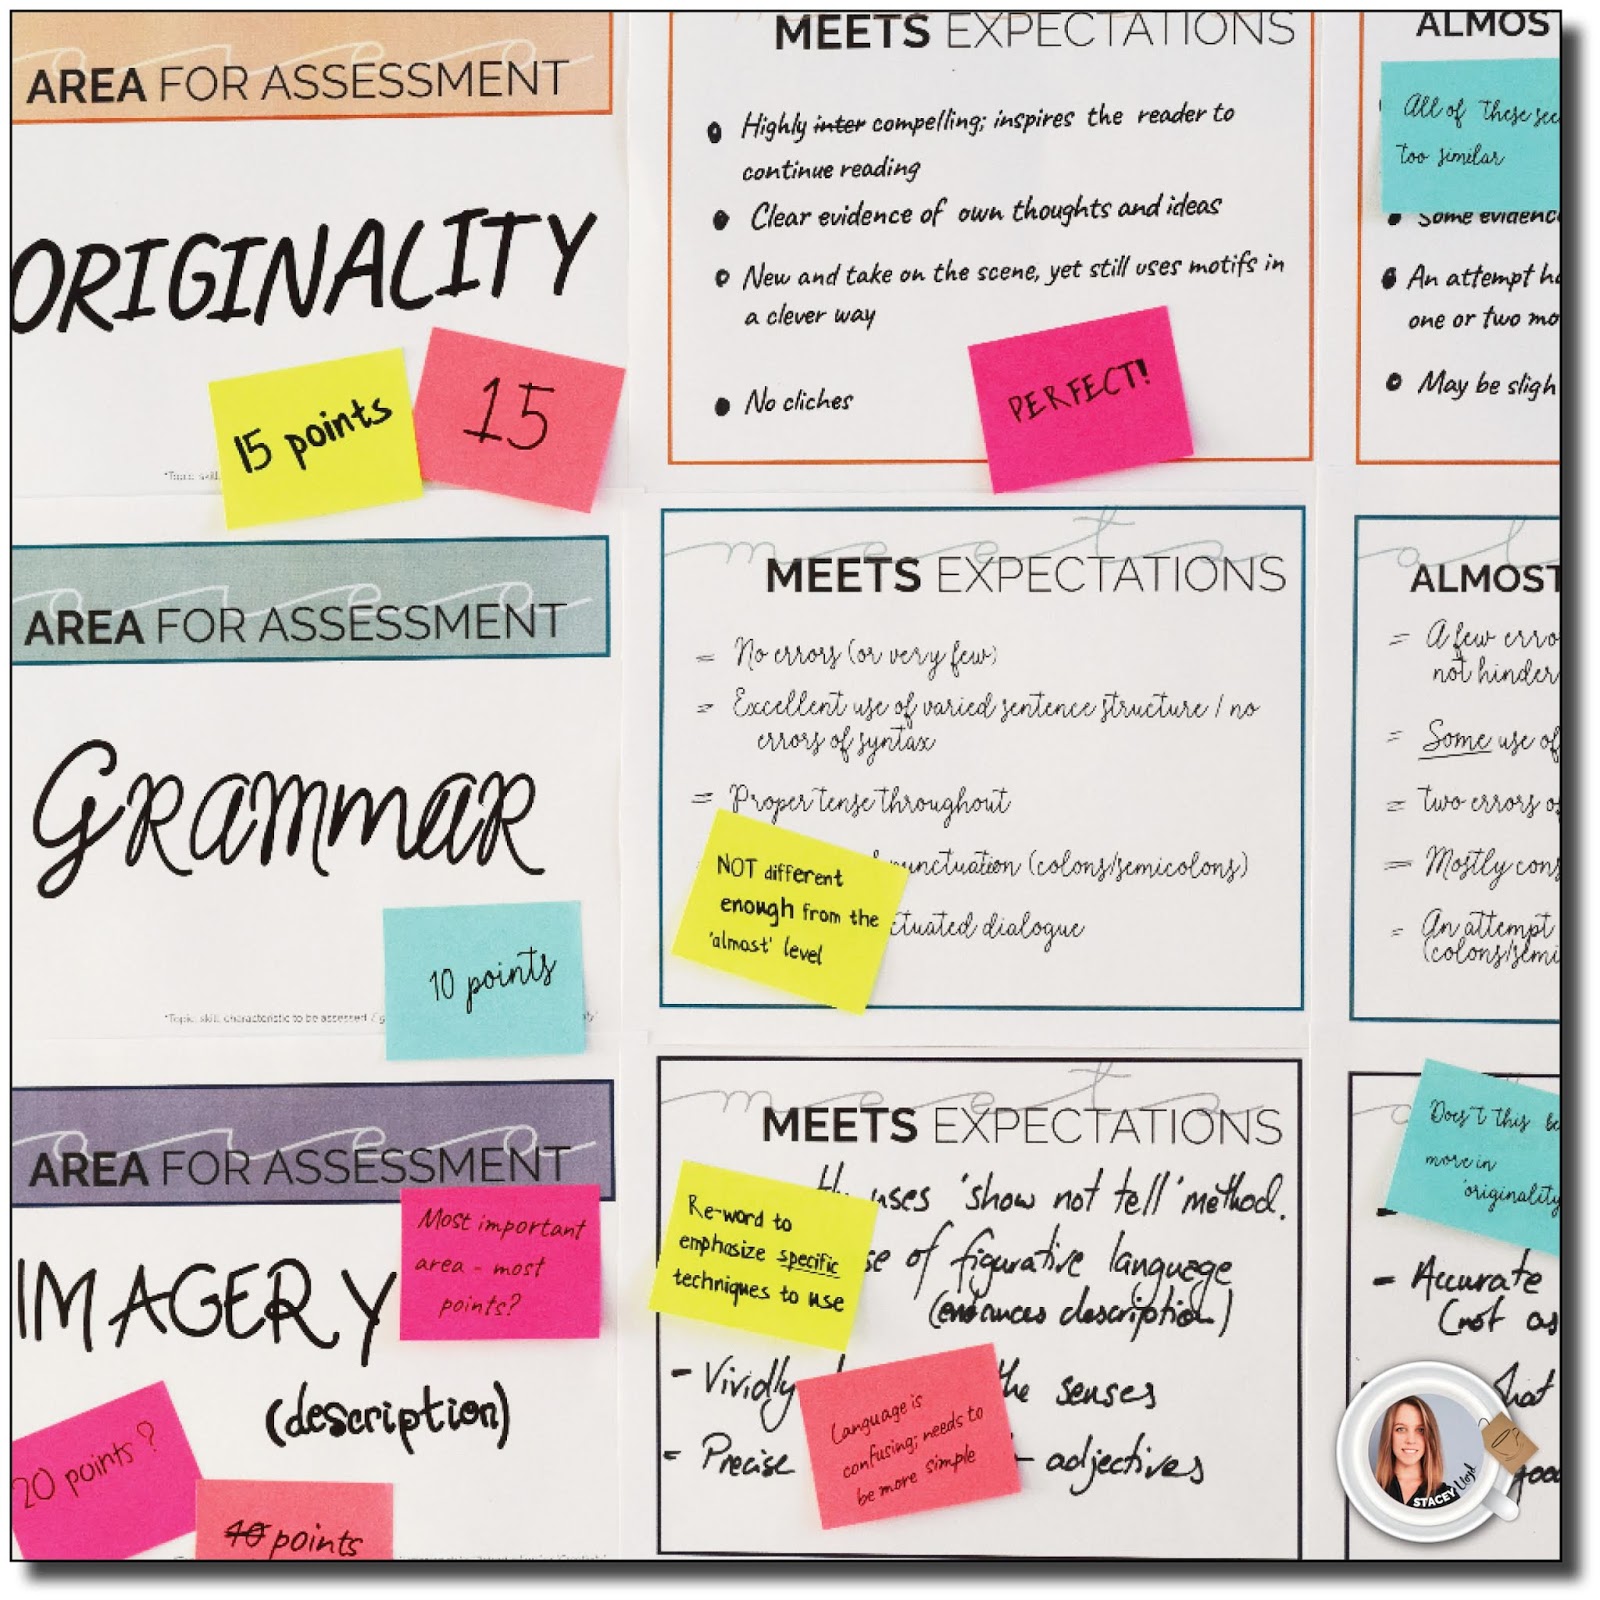 AREA FOR ASSESSMENT
ORIGINALITY
15 points
15
*Topic, skill,
MEETS EXPECTATIONS
Highly inter compelling; inspires the reader to
continue reading
Clear evidence of own thoughts and ideas
New and take on the scene, yet still uses motifs in
a clever way
No cliches
PERFECT!
ALMOS
All of these see
too similar
Some evidenc
An attempt ha
one or two mo
May be sligh
AREA FOR ASSESSMENT
Grammar
10 points
*Topic, skill, characteristic to be assessed / g
MEETS EXPECTATIONS
= No errors (or very few)
= Excellent use of varied sentence structure / no
errors of syntax
= Proper tense throughout
unctuation (colons/semicolons)
ctuated dialogue
NOT different
enough from the
'almost' level
ALMOST
= A few erro
not hinder
= Some use of
= two errors o
= Mostly cons
= An attempt
(colons/semi
AREA FOR ASSESSMENT
IMAGERY
(description)
Most important
area - most
points?
20 points?
40 points
MEETS EXPECTATIONS
uses 'show not tell' method.
se of figurative language
(enhances description)
- Vividly
the senses
= Precise
- adjectives
Re-word to
emphasize specific
techniques to use
Language is
confusing; needs to
be more simple
Does't this be
more in
'originality
- Accurate
(not as
hat
goo
STACEY Lloyd